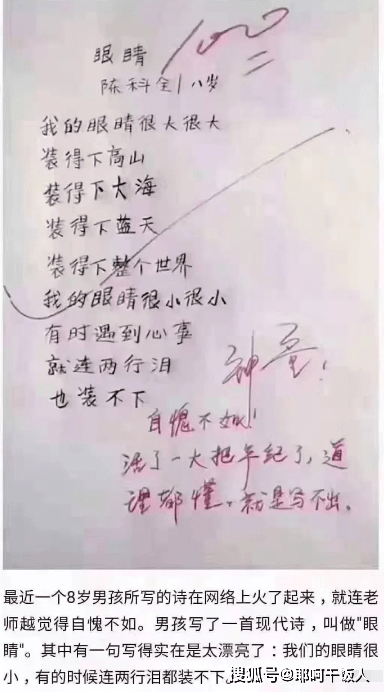 100
眼睛
陈科全 八岁
我的眼睛很大很大
装得下高山
装得下大海
装得下蓝天
装得下整个世界
我的眼睛很小很小
有时遇到心事
就连两行泪
也装不下
神童!
自愧不如!
活了一大把年纪了,道
理都懂,就是写不出。
最近一个8岁男孩所写的诗在网络上火了起来,就连老
师越觉得自愧不如。男孩写了一首现代诗,叫做"眼
睛"。其中有一句写得实在是太漂亮了:我们的眼睛很
小,有的时候连两行泪都装不下
搜狐号@那呵干饭人